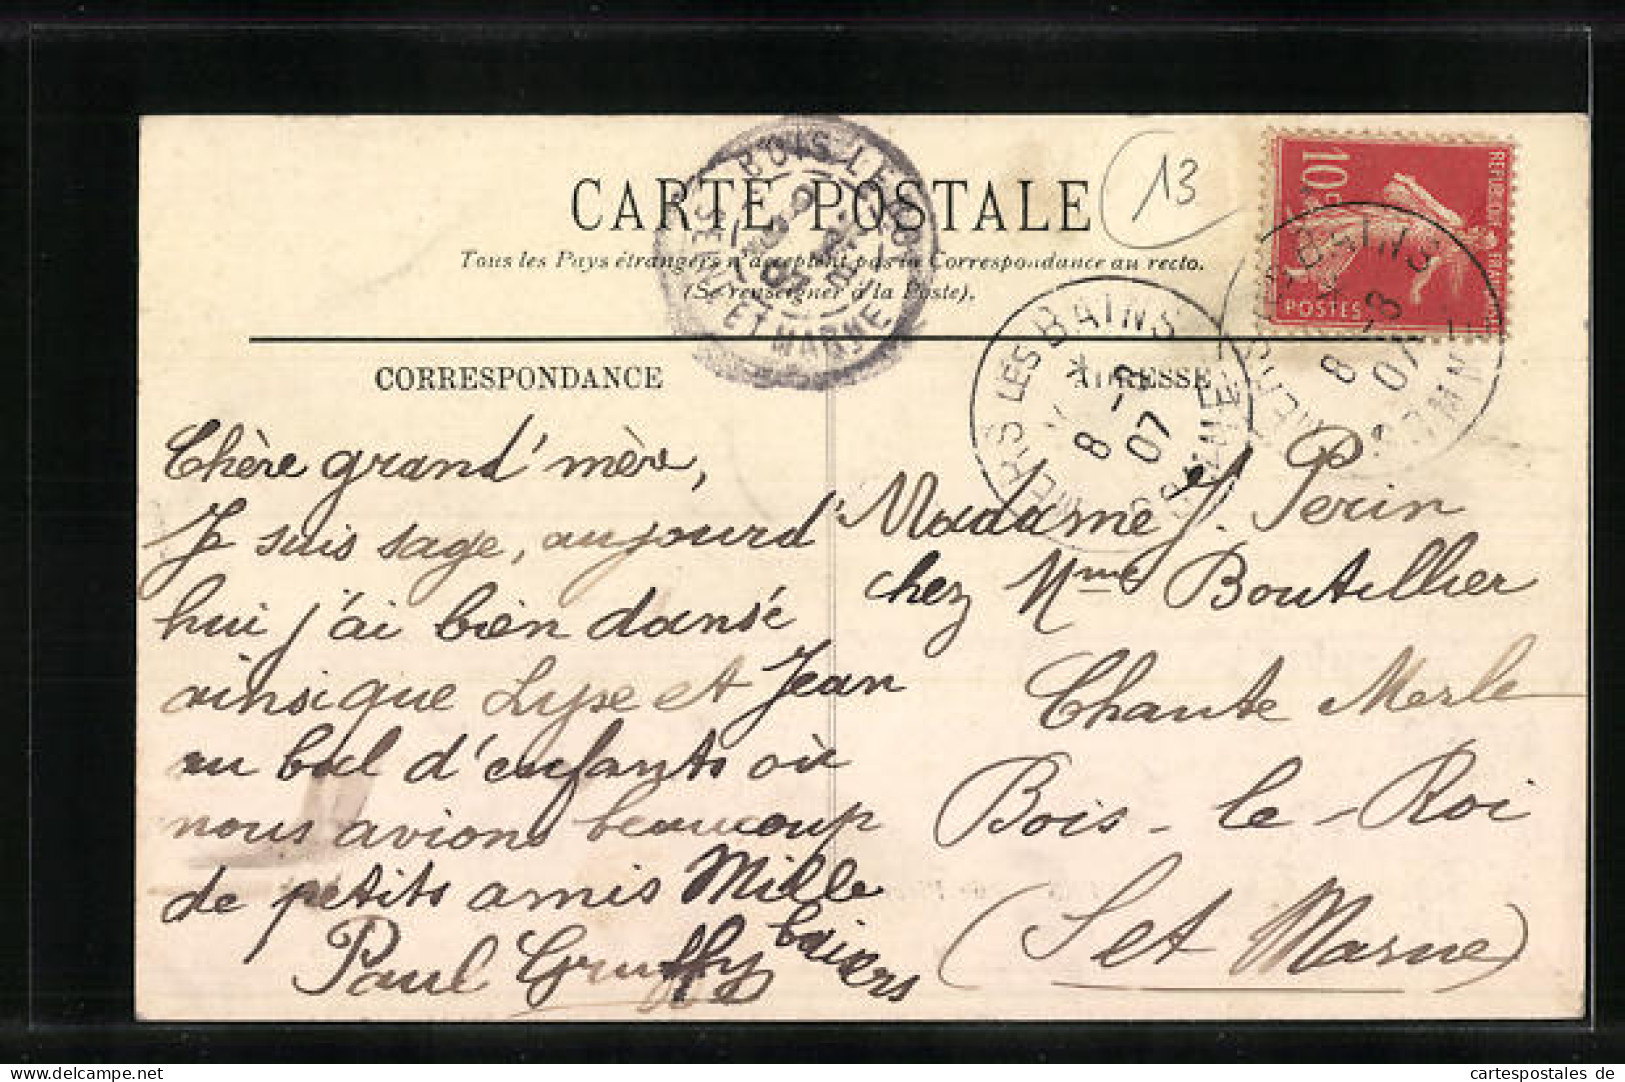 CARTE POSTALE
13
Tous les Pays étrangers n'acceptent pas la Correspondance au recto.
(Se renseigner à la Poste).
10
REPUBLIQUE FRANÇAISE
POSTES
BOIS LE ROI
ET MARNE
LES BAINS
8 -8
07
BAINS
8 -8
07
CORRESPONDANCE
Chère grand' mère,
Je suis sage, aujourd'
hui j'ai bien dansé
ainsi que Lyse et Jean
au bal d'enfants où
nous avions beaucoup
de petits amis Mille
baisers
Paul Gruffy
ADRESSE
Madame J. Perin
chez Mme Boutellier
Chante Merle
Bois-le-Roi
(S et Marne)
cartespostales de